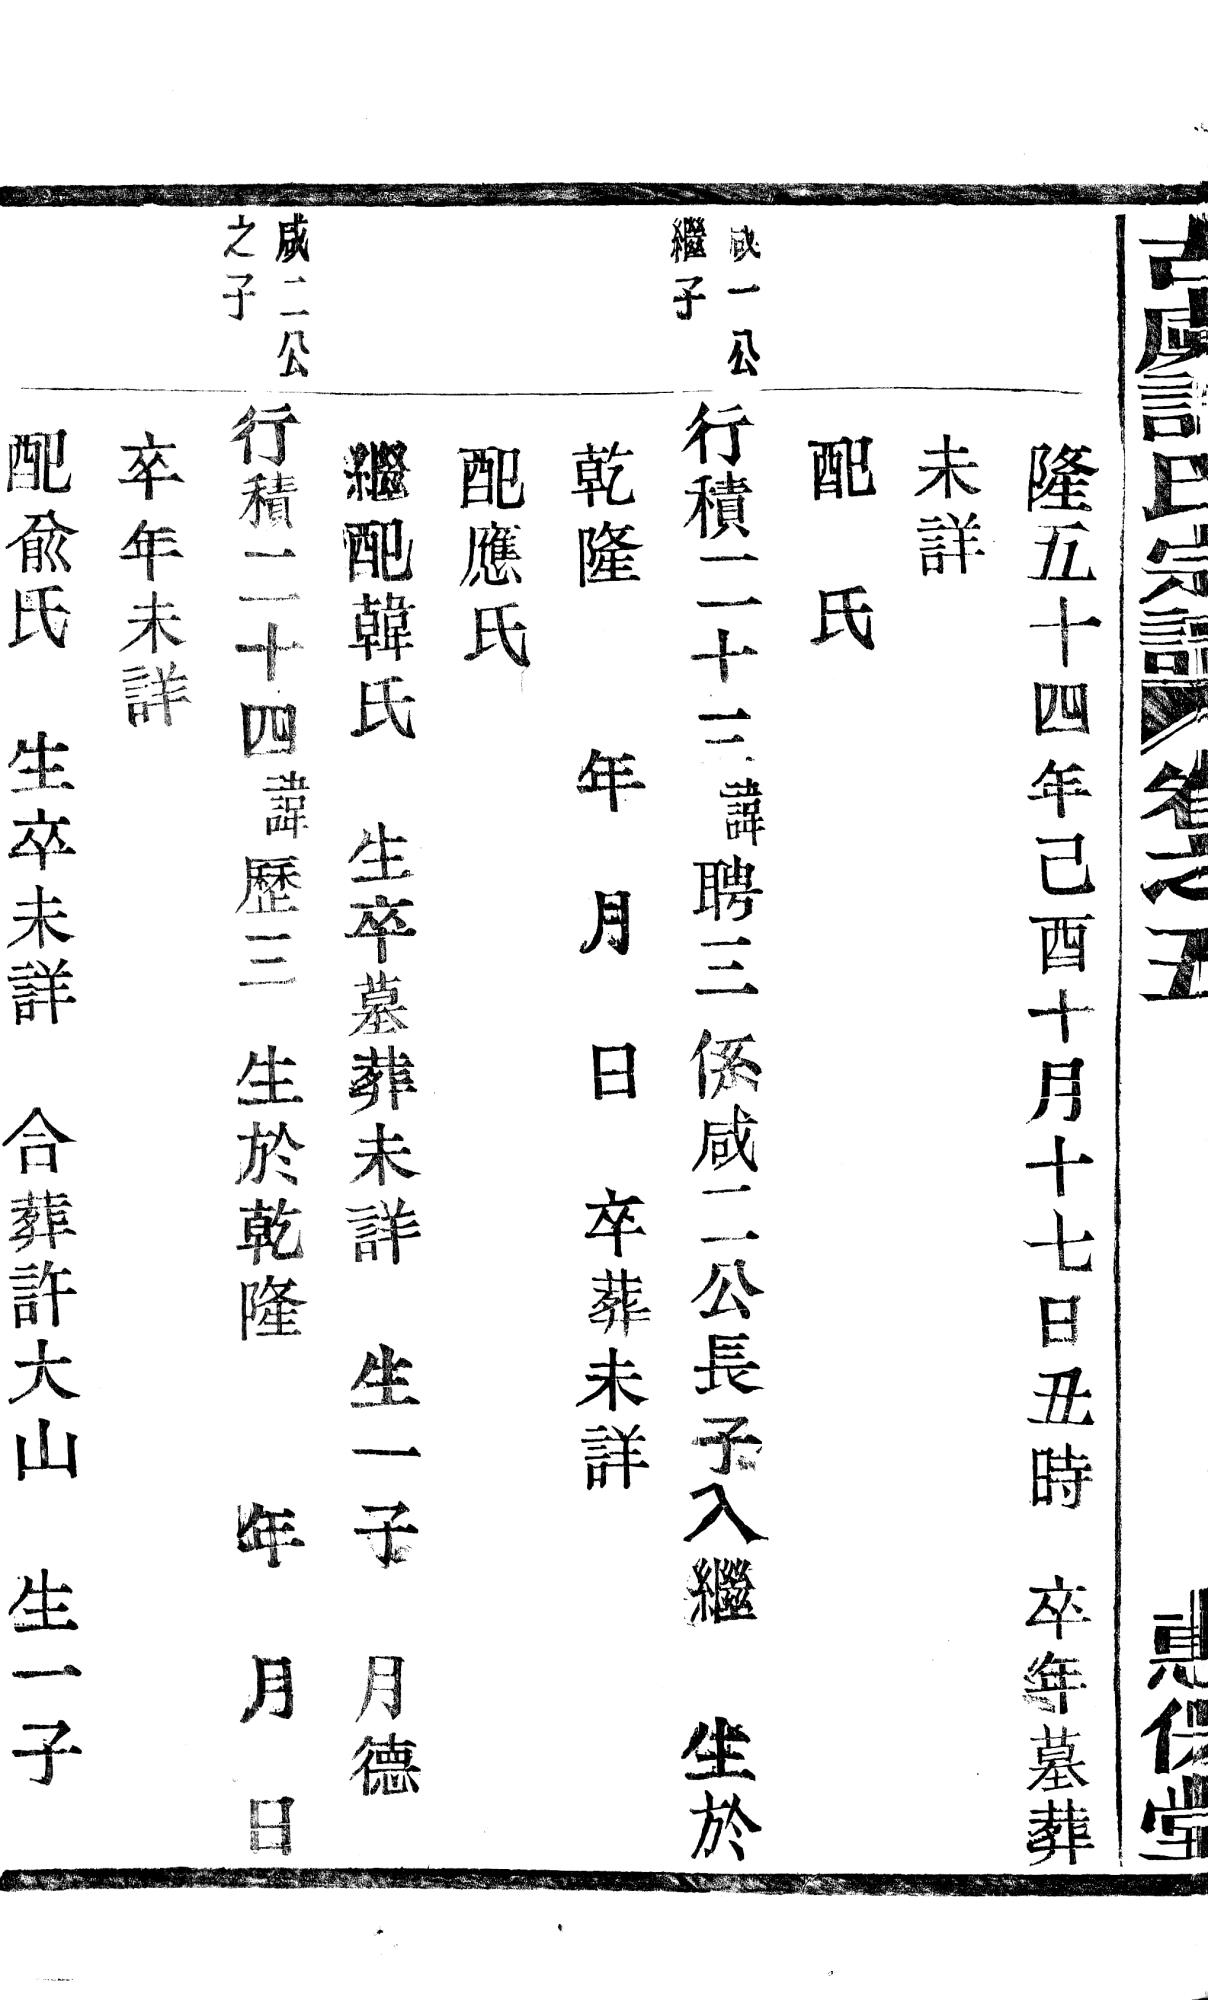 古虞許氏宗譜 卷之五 惠保堂
隆五十四年己酉十月十七日丑時 卒年墓葬
未詳
配 氏
咸一公
繼子
行積二十三諱聘三 係咸二公長子入繼 生於
乾隆 年 月 日 卒葬未詳
配應氏
繼配韓氏 生卒墓葬未詳 生一子 月德
咸二公
之子
行積二十四諱歷三 生於乾隆 年 月 日
卒年未詳
配俞氏 生卒未詳 合葬許大山 生一子